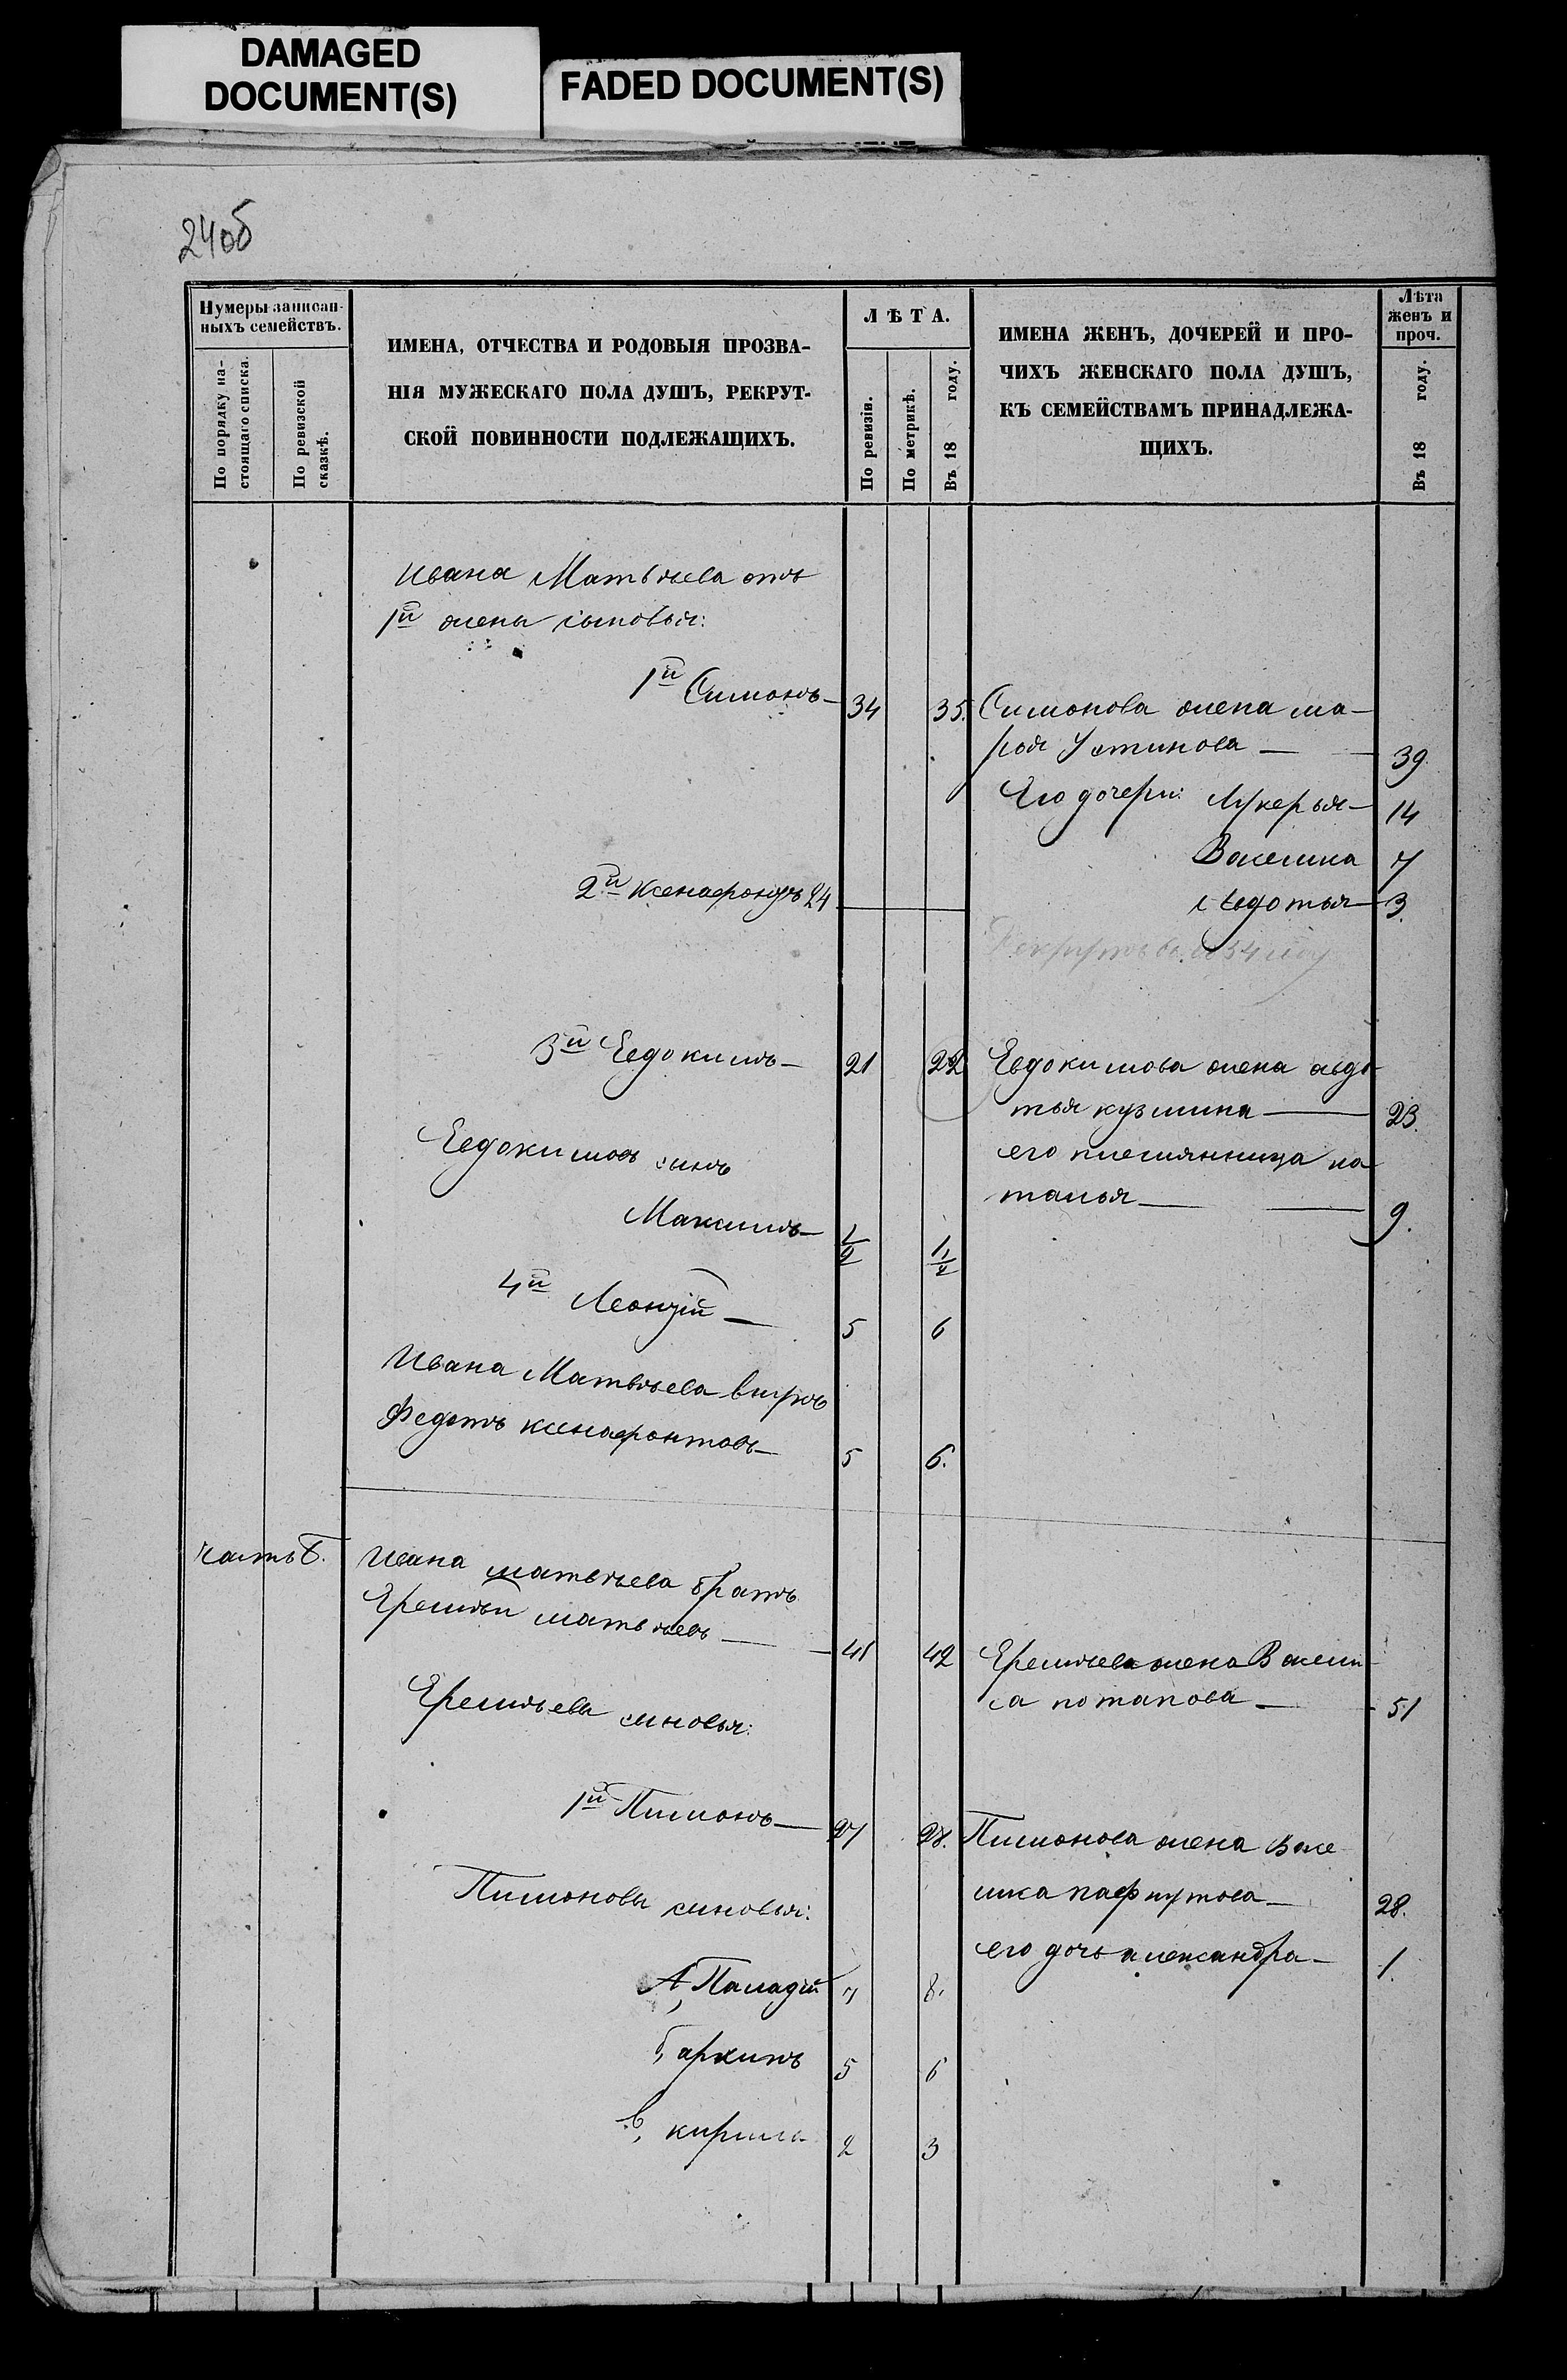 DAMAGED
DOCUMENT(S)
FADED DOCUMENT(S)
24об
Нумеры записан-
ныхъ семействъ.
По порядку на-
стоящаго списка.
По ревизской
сказкѣ.
ИМЕНА, ОТЧЕСТВА И РОДОВЫЯ ПРОЗВА-
НІЯ МУЖЕСКАГО ПОЛА ДУШЪ, РЕКРУТ-
СКОЙ ПОВИННОСТИ ПОДЛЕЖАЩИХЪ.
ЛѢТА.
По ревизіи.
По метрикѣ.
Въ 18 году.
ИМЕНА ЖЕНЪ, ДОЧЕРЕЙ И ПРО-
ЧИХЪ ЖЕНСКАГО ПОЛА ДУШЪ,
КЪ СЕМЕЙСТВАМЪ ПРИНАДЛЕЖА-
ЩИХЪ.
Лѣта
женъ и
проч.
Въ 18 году.
Ивана Матвѣева отъ
1й жены сыновья:
1й Симонъ 34 35. Симонова жена ма-
рья Устинова 39
Его дочери: Лукерья 14
Васелиса 7
2й Ксенафонтъ 24
Авдотья 3
3й Евдокимъ 21 22 Евдокимова жена авдо-
тья кузмина 23.
Евдокимовъ сынъ
его племянница на-
талья 9.
Максимъ 1/2 1 1/2
4й Леонтій 5 6
Ивана Матвѣева внукъ
Федотъ ксенафонтовъ 5 6.
часть б. Ивана матвѣева братъ
Еремѣй матвѣевъ 41 42 Еремѣева жена Васели-
са потапова 51
Еремѣевы сыновья:
1й Пимонъ 27 28. Пимонова жена Васе-
лиса пафнутова 28.
Пимоновы сыновья:
его дочь александра 1.
А, Паладій 7 8.
б, архипъ 5 6
в, кирила 2 3